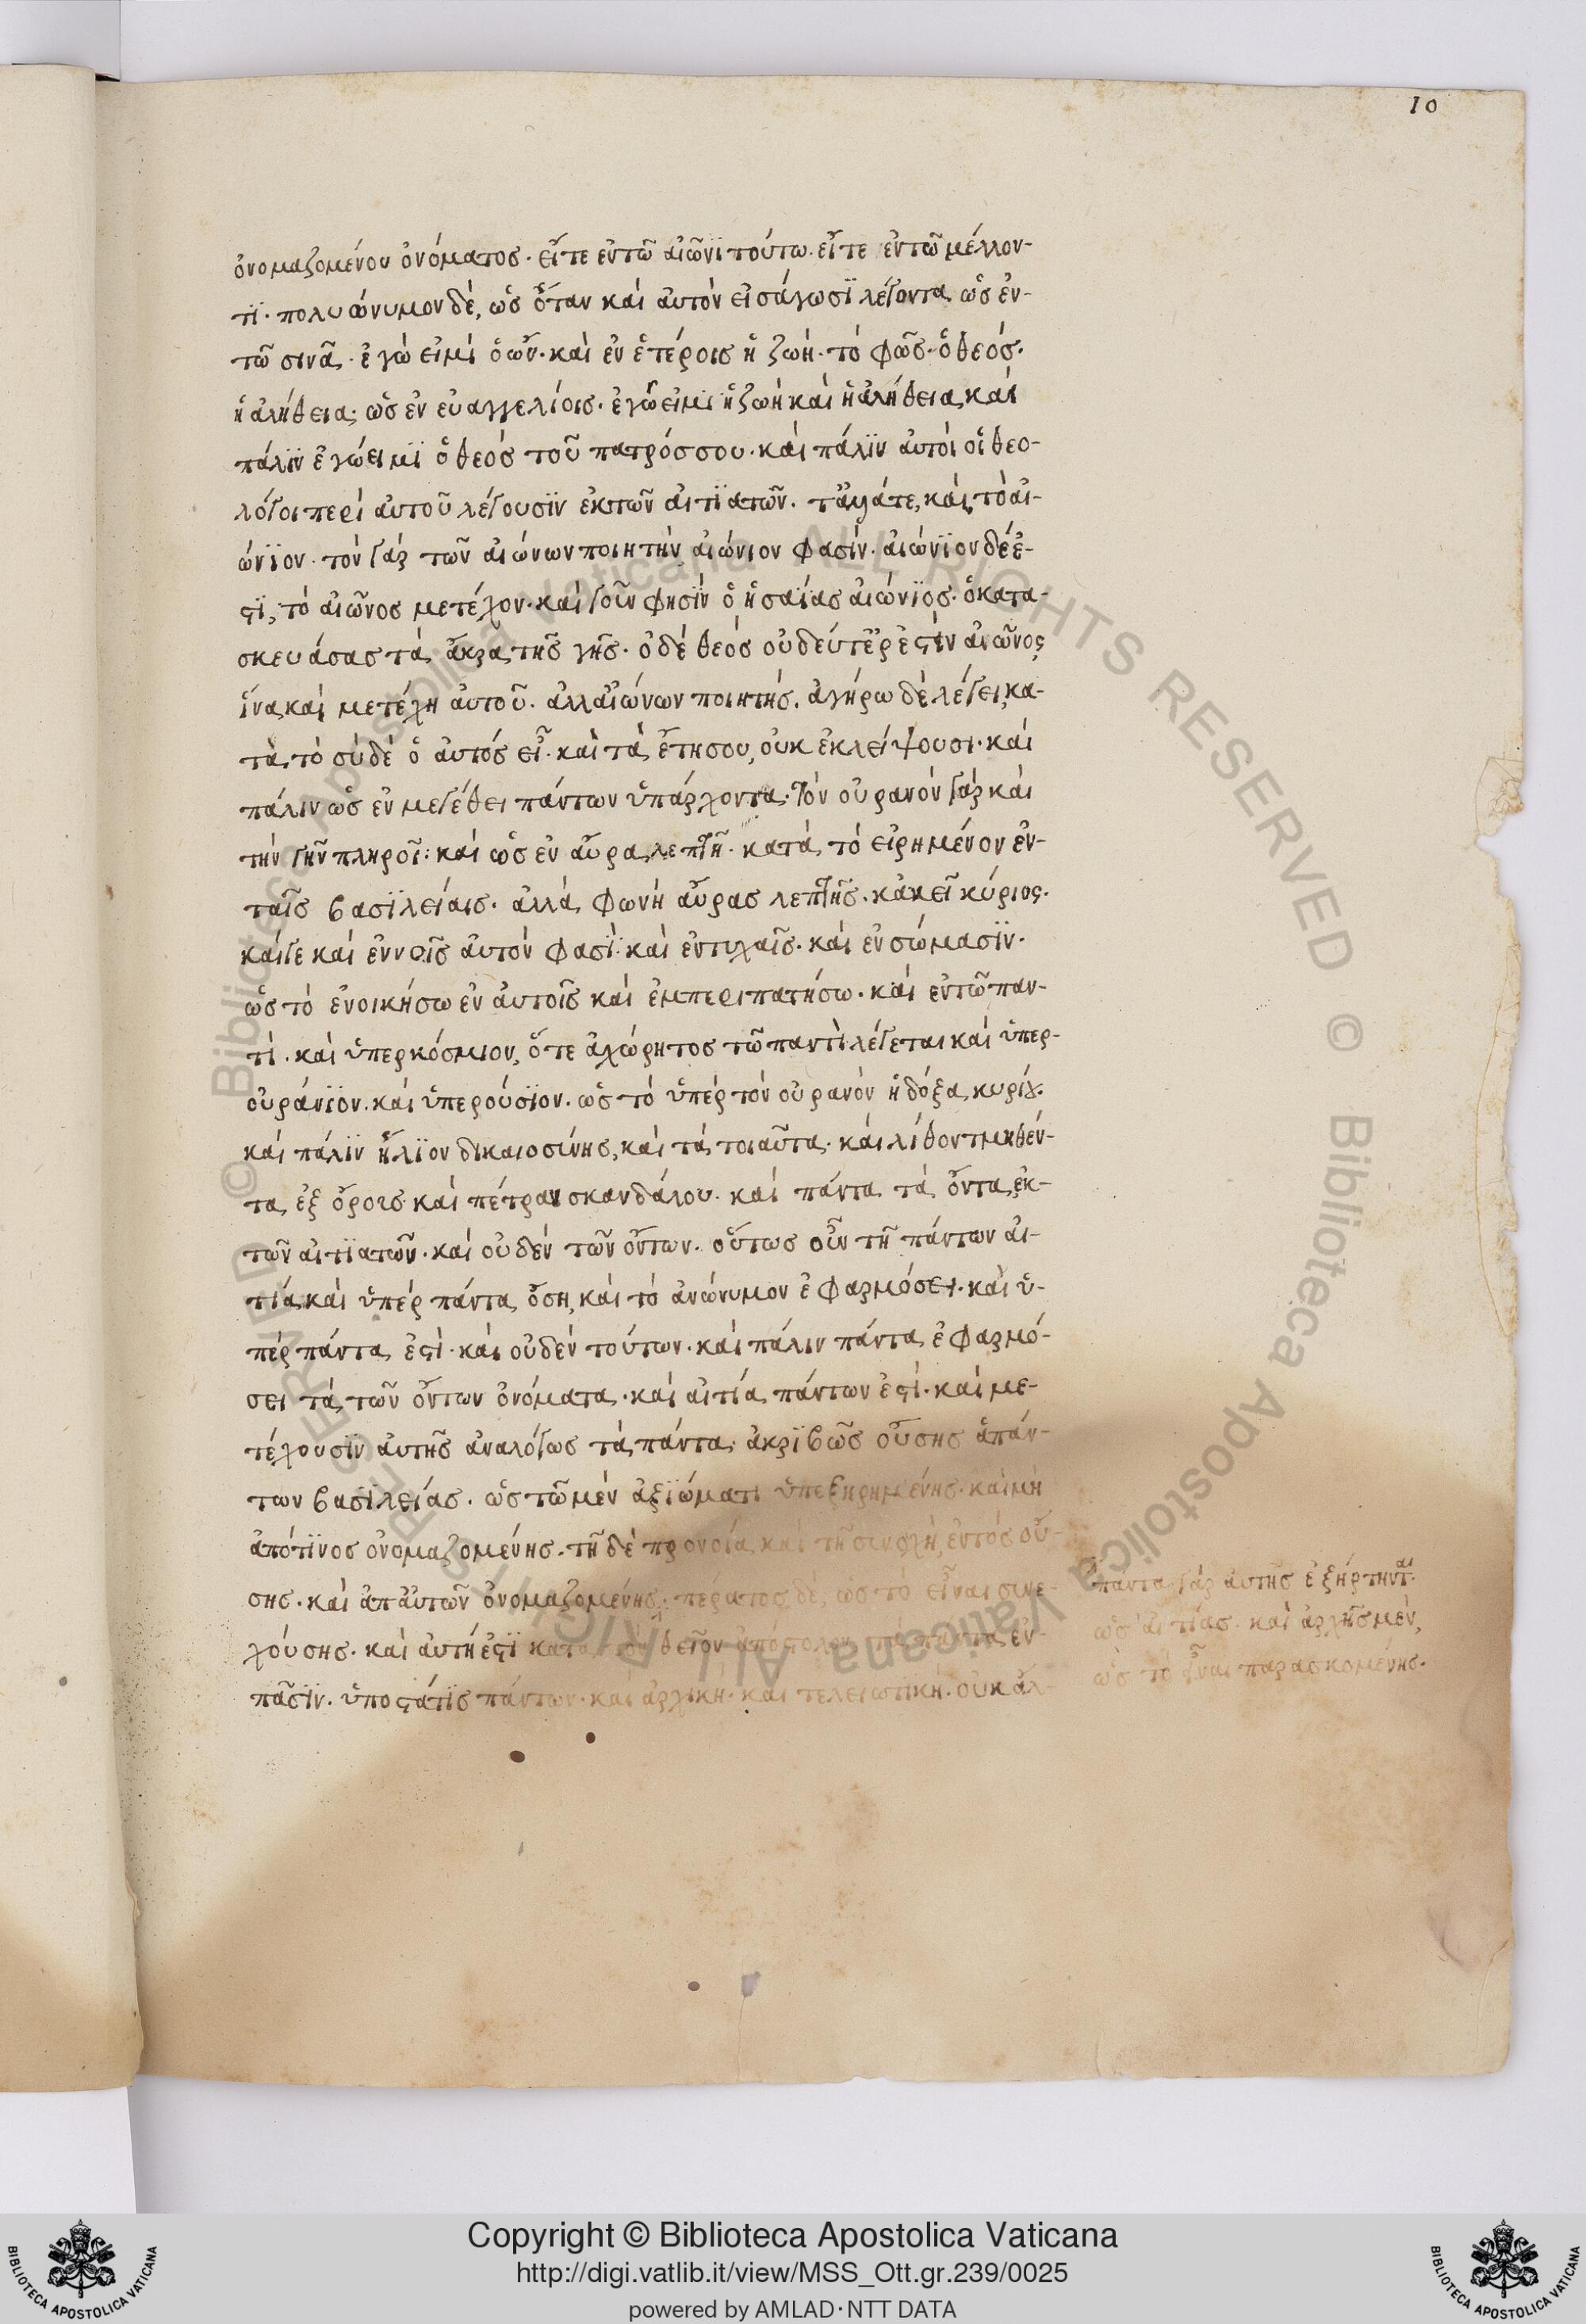 10
ὀνομαζομένου ὀνόματος· εἴτε ἐντῶ αἰῶνϊ τούτω· εἴτε ἐντῶ μέλλον-
τϊ· πολυώνυμον δὲ, ὡς ὅταν καὶ αὐτὸν εἰσάγωσϊ λέγοντα, ὡς ἐν-
τῶ σινᾶ· ἐγὼ εἰμὶ ὁ ὤν· καὶ ἐν ἑτέροις ἡ ζωή· τὸ φῶς· ὁ θεός·
ἡ ἀλήθεια· ὡς ἐν εὐαγγελίοις· ἐγώ εἰμι ἡ ζωὴ καὶ ἡ ἀλήθεια, καὶ
πάλϊν ἐγώ εἰμϊ ὁ θεὸς τοῦ πατρός σου· καὶ πάλϊν αὐτοὶ οἱ θεο-
λόγοι περὶ αὐτοῦ λέγουσϊν ἐκτῶν αἰτϊατῶν· τἀγάτε, καὶ τὸ αἰ-
ώνϊον· τὸν γὰρ τῶν αἰώνων ποιητὴν αἰώνιον φασίν· αἰώνϊον δέ ἐ-
ςϊ, τὸ αἰῶνος μετέχον· καὶ γοῦν φησϊν ὁ ἡσαΐας αἰώνϊος· ὁ κατα-
σκευάσας τὰ ἄκρα τῆς γῆς· ὁ δὲ θεὸς οὐ δεύτερ ἐςὶν αἰῶνος
ἵνα καὶ μετέχη αὐτοῦ· ἀλλ αἰώνων ποιητής. ἀγήρω δὲ λέγει, κα-
τὰ τὸ σὺ δὲ ὁ αὐτὸς εἶ· καὶ τὰ ἔτη σου, οὐκ ἐκλείψουσι· καὶ
πάλιν ὡς ἐν μεγέθει πάντων ὑπάρχοντα· Τὸν οὐρανὸν γὰρ καὶ
τὴν γῆν πληροῖ: καὶ ὡς ἐν αὔρα λεπτῆ· κατὰ τὸ εἰρημένον ἐν-
ταῖς βασϊλείαις· ἀλλὰ φωνὴ αὔρας λεπτῆς· κἀκεῖ κύριος·
καίγε καὶ ἐν νοῖς αὐτὸν φασὶ· καὶ ἐν ψυχαῖς· καὶ ἐν σώμασϊν·
ὡς τὸ ἐνοικήσω ἐν αὐτοῖς καὶ ἐμπεριπατήσω· καὶ ἐντῶ παν-
τὶ· καὶ ὑπερκόσμιον, ὅτε ἀχώρητος τῶ παντὶ λέγεται καὶ ὑπερ-
ουράνϊον· καὶ ὑπερούσϊον· ὡς τὸ ὑπὲρ τὸν οὐρανὸν ἡ δόξα κυρίου·
καὶ πάλϊν ἥλϊον δικαιοσύνης, καὶ τὰ τοιαῦτα· καὶ λίθον τμηθέν-
τα ἐξ ὄρους καὶ πέτραν σκανδάλου· καὶ πάντα τὰ ὄντα, ἐκ-
τῶν αἰτϊατῶν· καὶ οὐδὲν τῶν ὄντων· οὕτως οὖν τῆ πάντων αἰ-
τία, καὶ ὑπὲρ πάντα οὔση, καὶ τὸ ἀνώνυμον ἐφαρμόσει· καὶ ὑ-
πὲρ πάντα ἐςὶ· καὶ οὐδὲν τούτων· καὶ πάλιν πάντα ἐφαρμό-
σει τὰ τῶν ὄντων ὀνόματα· καὶ αἰτία πάντων ἐςί· καὶ με-
τέχουσϊν αὐτῆς ἀναλόγως τὰ πάντα· ἀκρϊβῶς οὔσης ἁπάν-
των βασϊλείας· ὡς τῶ μὲν ἀξϊώματι ὑπεξηρημένης· καὶ μὴ
ἀπότϊνος ὀνομαζομένης· τῆ δὲ προνοία καὶ τῆ συνοχῆ, ἐντὸς οὔ-
σης· καὶ ἀπ αὐτῶν ὀνομαζομένης· πέρατος δὲ, ὡς τὸ εἶναι συνε-
χούσης· καὶ αὐτή ἐςϊ κατὰ τὸν θεῖον ἀπόςολον τὰ πάντα ἐν-
πᾶσϊν· ὑποςάτϊς πάντων· καὶ ἀρχικὴ· καὶ τελειωτϊκή· οὐκ ἀλ-
πάντα γὰρ αὐτῆς ἐξήρτηνται·
ὡς αἰτίας· καὶ ἀρχῆς μὲν,
ὡς τὸ εἶναι παρασκομένης·
Copyright © Biblioteca Apostolica Vaticana
http://digi.vatlib.it/view/MSS_Ott.gr.239/0025
powered by AMLAD·NTT DATA
BIBLIOTECA APOSTOLICA VATICANA
BIBLIOTECA APOSTOLICA VATICANA
© Biblioteca Apostolica Vaticana ALL RIGHTS RESERVED © Biblioteca Apostolica Vaticana ALL RIGHTS RESERVED